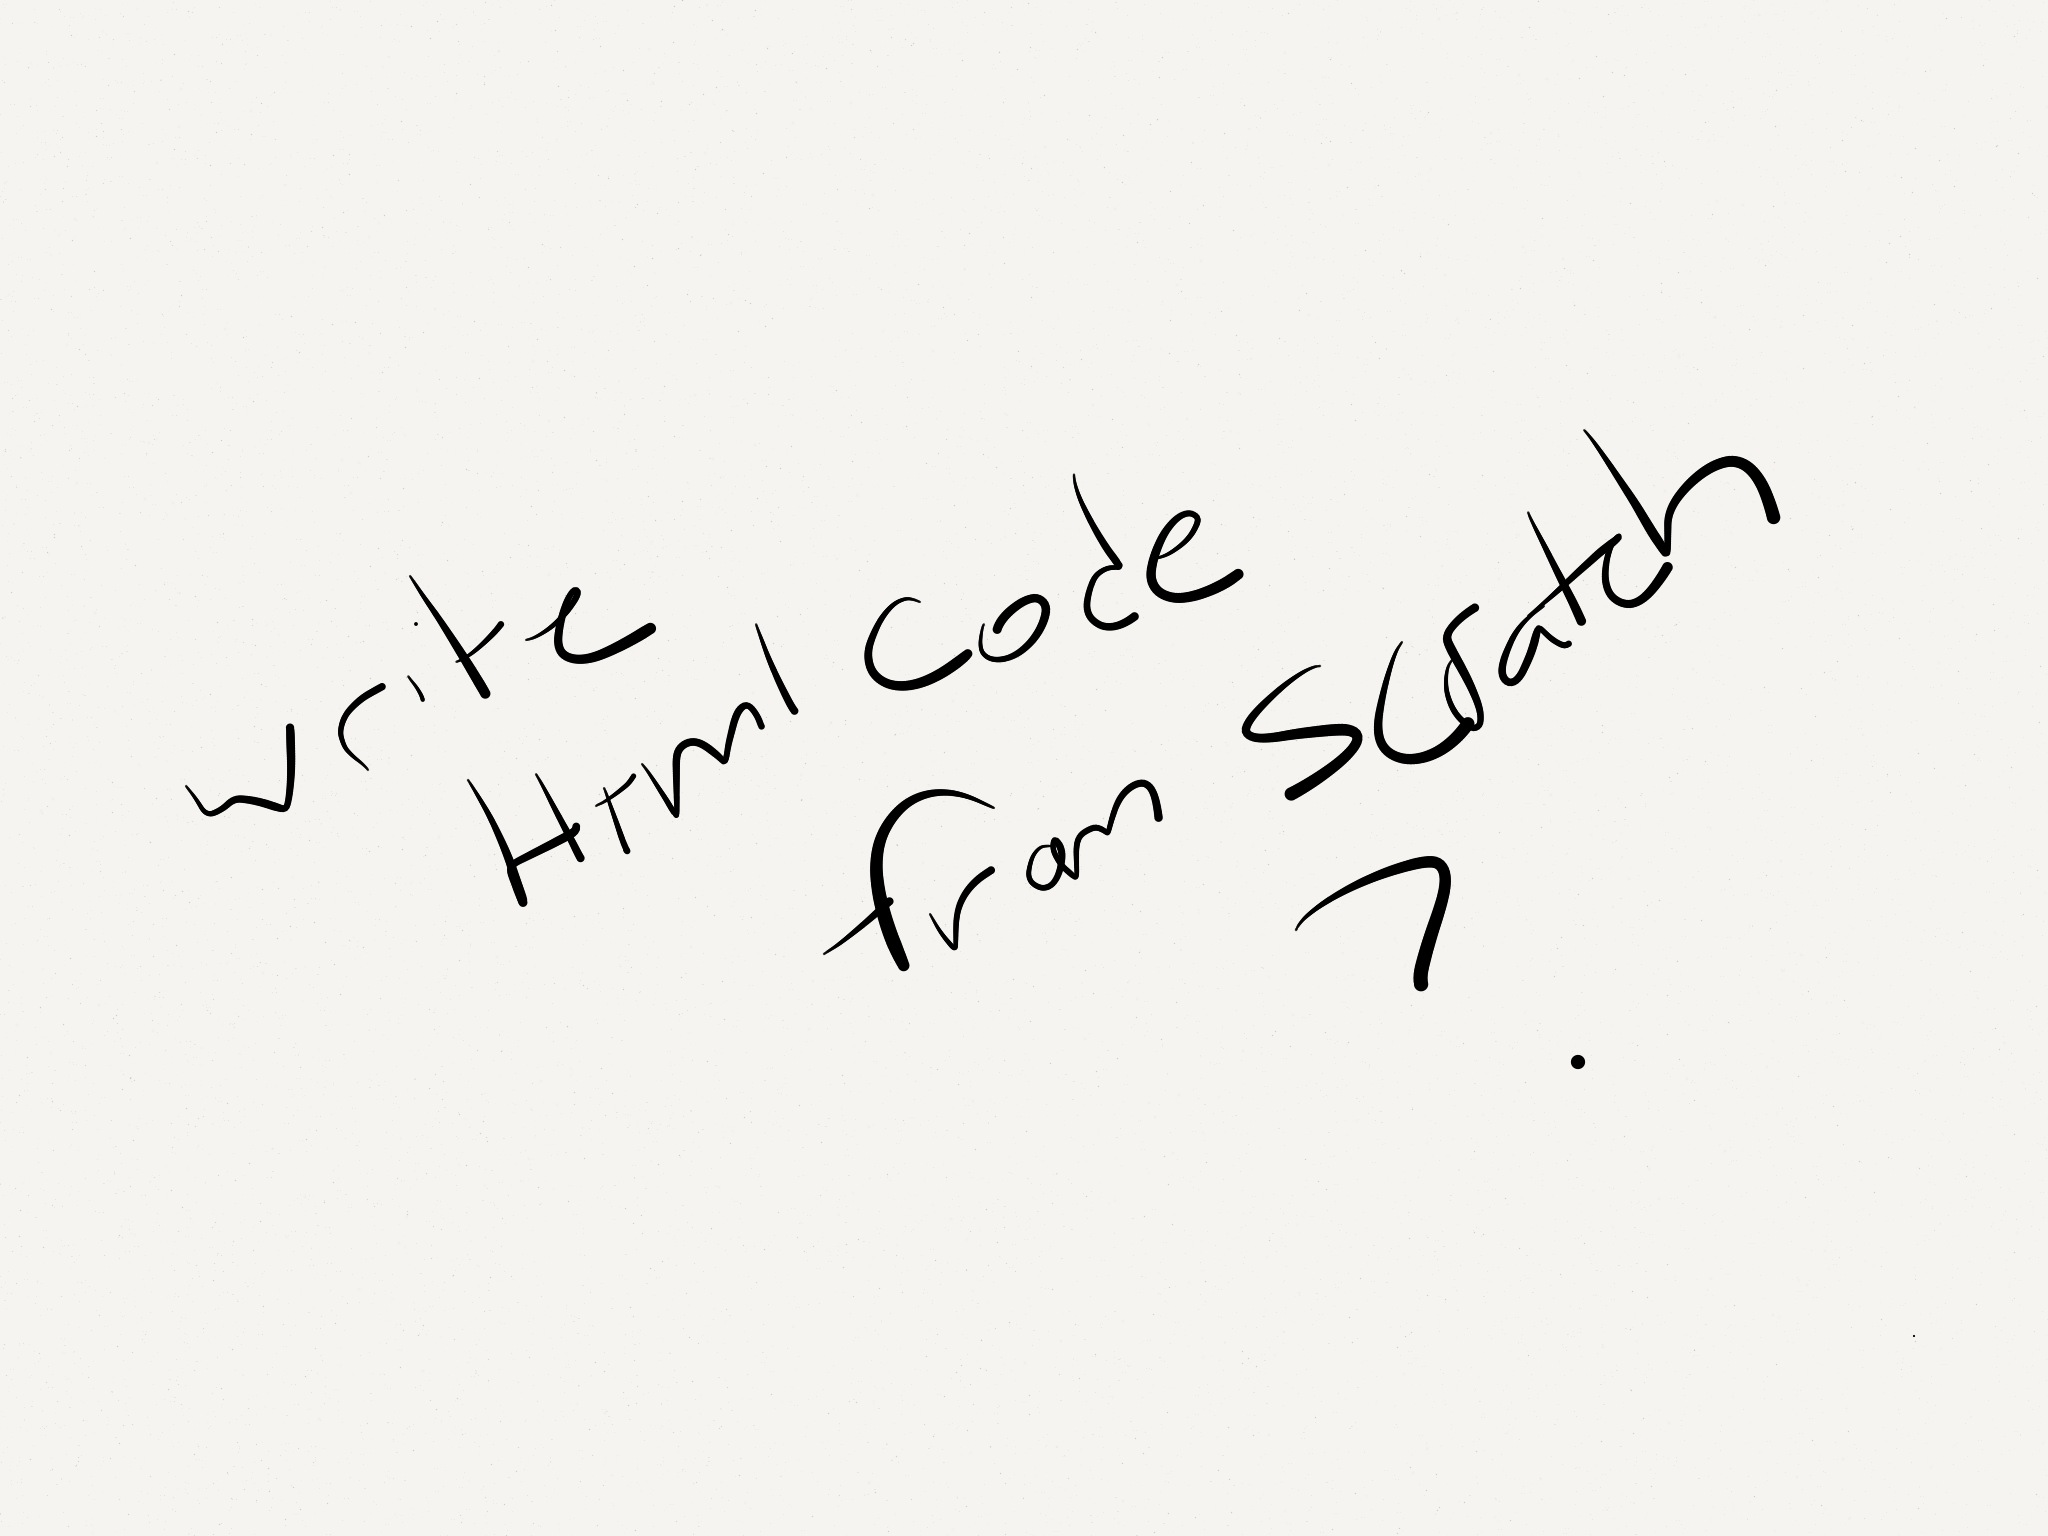 write
Html code
from scratch
?